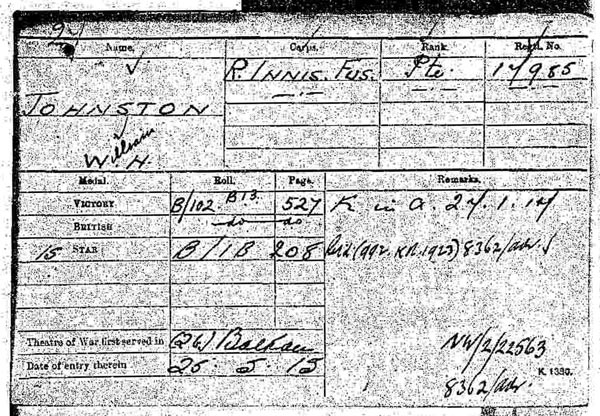 Name. Corps. Rank. Regtl. No.
R. INNIS. FUS. Pte. 17985
JOHNSTON
William
H.
Medal. Roll. Page. Remarks.
VICTORY B/102 B13. 527 K in A. 27.1.17
BRITISH do do
15 STAR B/1B 208 (992. KR. 1923) 8362/adv.
Theatre of War first served in (2b) Balkan
Date of entry therein 25. 5. 15
NW/2/22563
K. 1380.
8362/adv.